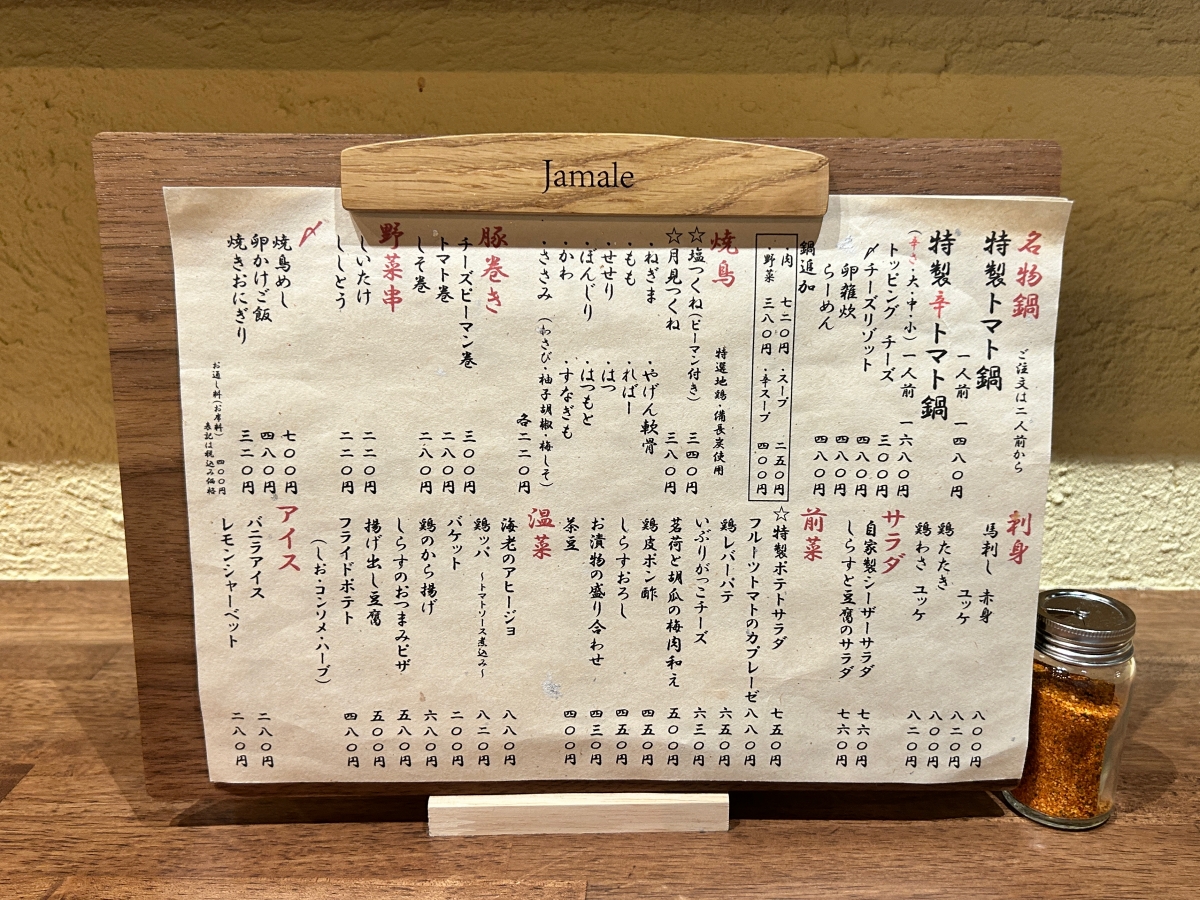 Jamale
名物鍋 ご注文は二人前から
特製トマト鍋
一人前 一四八〇円
特製辛トマト鍋
(辛さ・大・中・小) 一人前 一六八〇円
トッピング チーズ 三〇〇円
〆チーズリゾット 四八〇円
卵雑炊 四八〇円
らーめん 四八〇円
鍋追加
・肉 七二〇円 ・スープ 二五〇円
・野菜 三八〇円 ・辛スープ 四〇〇円
焼鳥 特選地鶏・備長炭使用
☆塩つくね(ピーマン付き) 三四〇円
☆月見つくね 三八〇円
・ねぎま ・やげん軟骨
・もも ・ればー
・せせり ・はつ
・ぼんじり ・はつもと
・かわ ・すなぎも
・ささみ (わさび・柚子胡椒・梅しそ)
各二二〇円
豚巻き
チーズピーマン巻 三〇〇円
トマト巻 二八〇円
しそ巻 二八〇円
野菜串
しいたけ 二二〇円
ししとう 二二〇円
〆
焼鳥めし 七〇〇円
卵かけご飯 四八〇円
焼きおにぎり 三二〇円
お通し料(お席料) 四〇〇円
表記は税込み価格
刺身
馬刺し 赤身 八〇〇円
ユッケ 八二〇円
鶏たたき 八〇〇円
鶏わさ ユッケ 八二〇円
サラダ
自家製シーザーサラダ 七六〇円
しらすと豆腐のサラダ 七六〇円
前菜
☆特製ポテトサラダ 七五〇円
フルーツトマトのカプレーゼ 八八〇円
鶏レバーパテ 六五〇円
いぶりがっこチーズ 六三〇円
茗荷と胡瓜の梅肉和え 五〇〇円
鶏皮ポン酢 四五〇円
しらすおろし 四五〇円
お漬物の盛り合わせ 四三〇円
茶豆 四〇〇円
温菜
海老のアヒージョ 八八〇円
鶏ッパ ～トマトソース煮込み～ 八二〇円
バケット 二〇〇円
鶏のから揚げ 六八〇円
しらすのおつまみピザ 五八〇円
揚げ出し豆腐 五〇〇円
フライドポテト 四八〇円
(しお・コンソメ・ハーブ)
アイス
バニラアイス 二八〇円
レモンシャーベット 二八〇円